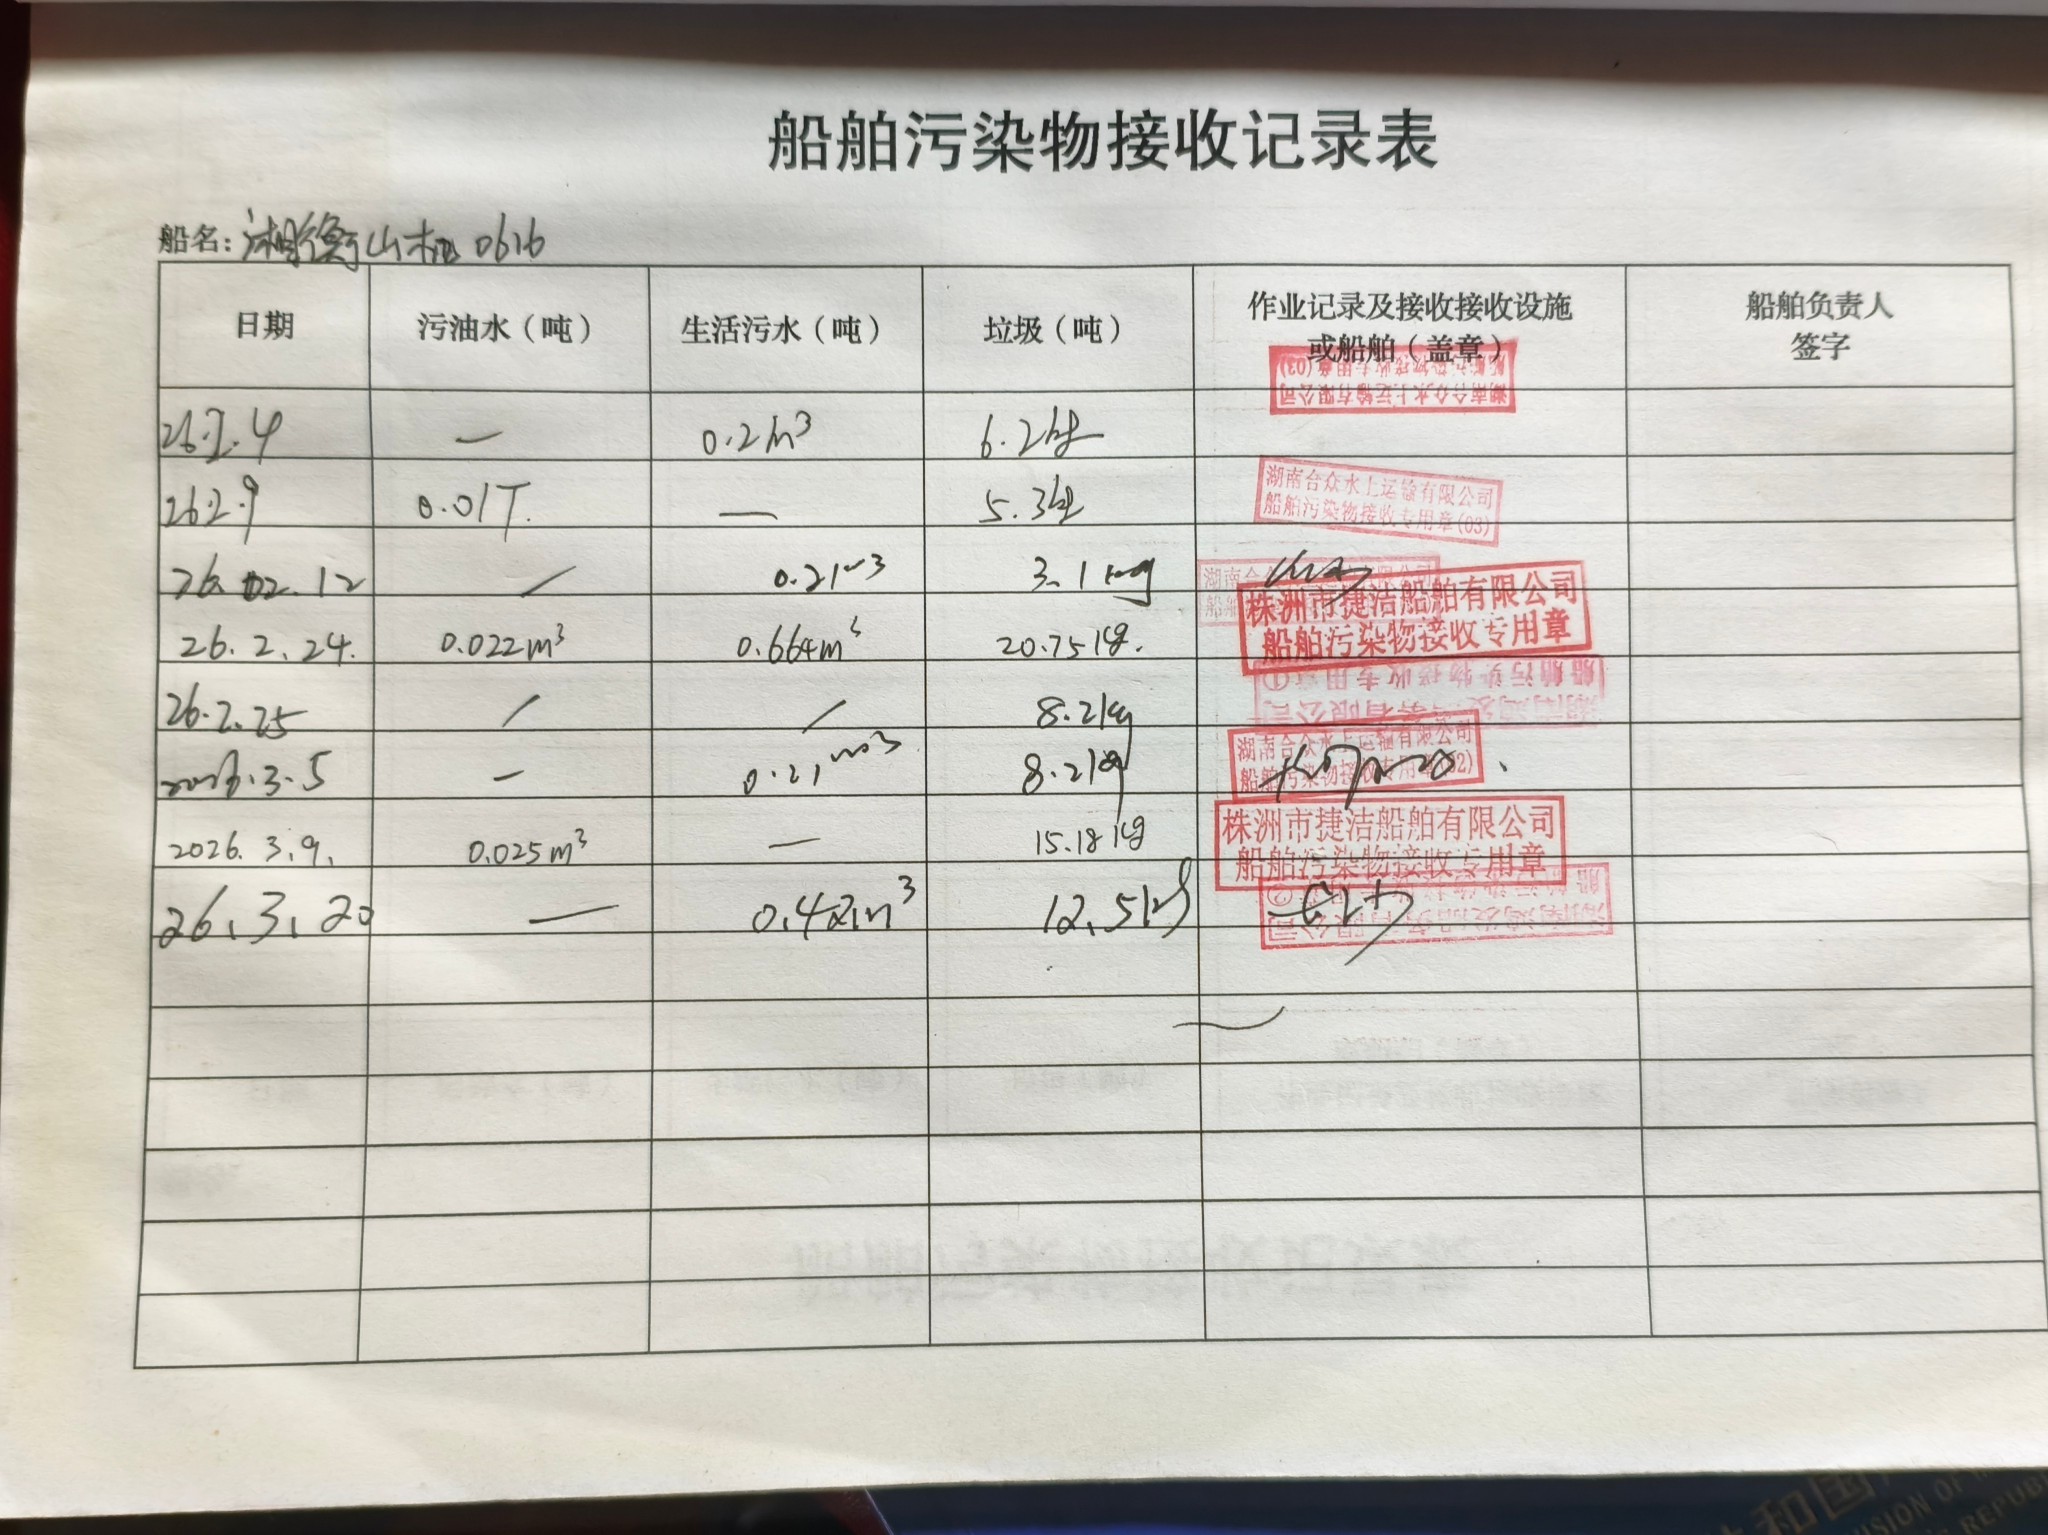 船舶污染物接收记录表
船名: 湘衡山机0616
日期 污油水（吨） 生活污水（吨） 垃圾（吨） 作业记录及接收接收设施或船舶（盖章） 船舶负责人签字
湖南合众水上运输有限公司
船舶污染物接收专用章(03)
26.2.4 — 0.2m³ 6.2kg
26.2.9 0.01T. — 5.3kg
湖南合众水上运输有限公司
船舶污染物接收专用章(03)
26.02.12 / 0.21m3 3.1kg
株洲市捷洁船舶有限公司
船舶污染物接收专用章
26.2.24. 0.022m³ 0.664m³ 20.75kg.
船舶污染物接收专用章①
26.2.25 / / 8.2kg
湖南合众水上运输有限公司
船舶污染物接收专用章(02)
2026.3.5 — 0.21m3 8.2kg
株洲市捷洁船舶有限公司
船舶污染物接收专用章
2026.3.9. 0.025m³ — 15.18kg
26.3.20 — 0.42m³ 12.5kg
共和国
REPUBL